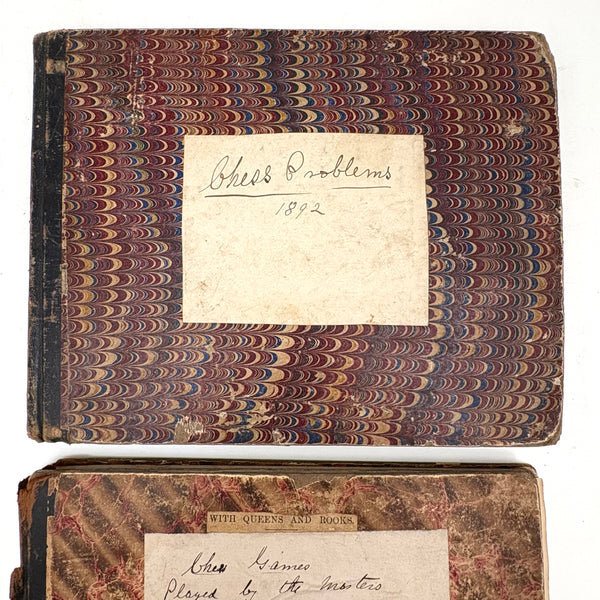 Chess Problems
1892
WITH QUEENS AND ROOKS.
Chess Games
Played by the Masters